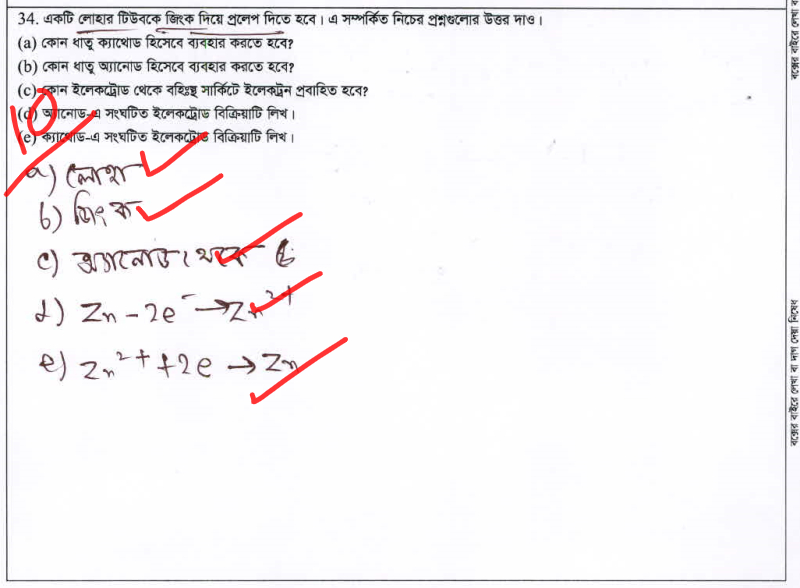 34. একটি লোহার টিউবকে জিংক দিয়ে প্রলেপ দিতে হবে। এ সম্পর্কিত নিচের প্রশ্নগুলোর উত্তর দাও।
(a) কোন ধাতু ক্যাথোড হিসেবে ব্যবহার করতে হবে?
(b) কোন ধাতু অ্যানোড হিসেবে ব্যবহার করতে হবে?
(c) কোন ইলেকট্রোড থেকে বহিঃস্থ সার্কিটে ইলেকট্রন প্রবাহিত হবে?
(d) অ্যানোড-এ সংঘটিত ইলেকট্রোড বিক্রিয়াটি লিখ।
(e) ক্যাথোড-এ সংঘটিত ইলেকট্রোড বিক্রিয়াটি লিখ।
10
a) লোহা
b) জিংক
c) অ্যানোড থেকে
d) Zn - 2e⁻ → Zn²⁺
e) Zn²⁺ + 2e → Zn
বক্সের বাইরে লেখা বা দাগ দেয়া নিষেধ